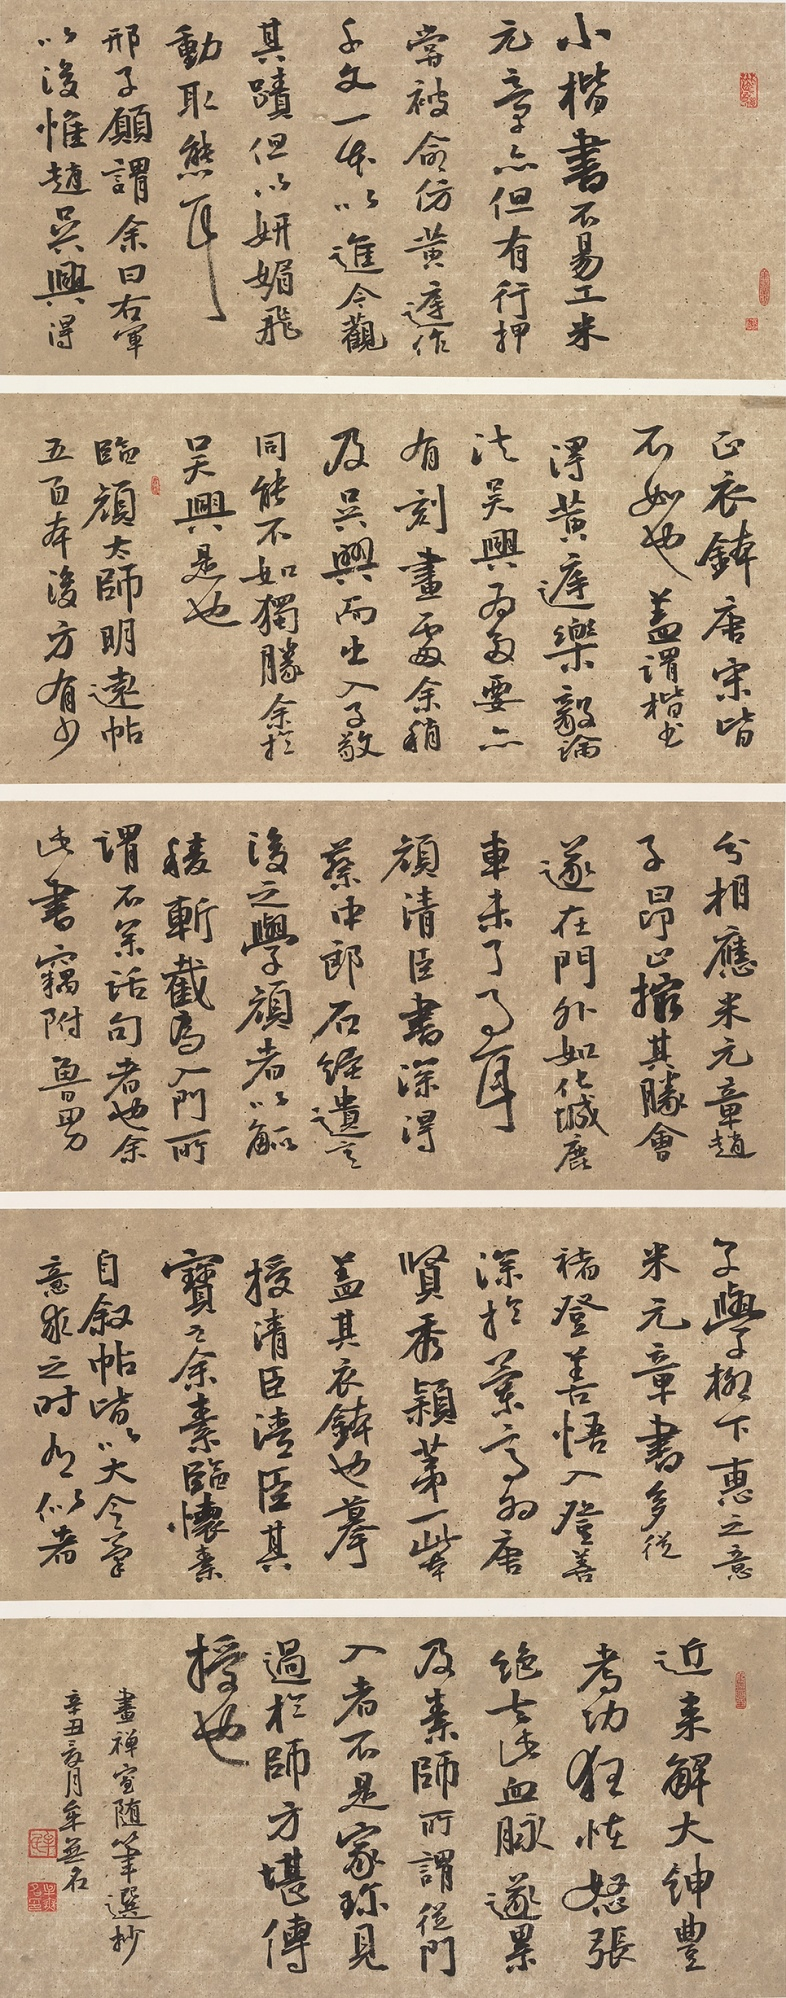 小楷書不易工米
元章亦但有行押
嘗被命仿黃庭作
千文一本以進今觀
其蹟但以妍媚飛
動取態耳
邢子愿謂余曰右軍
以後惟趙吳興得
正衣鉢唐宋皆
不如也蓋謂楷書
得黃庭樂毅論
法吳興為多要亦
有刻畫處余稍
及吳興而出入子敬
同能不如獨勝余於
吳興是也
臨顏太師明遠帖
五百本後方有少
分相應米元章趙
子昂止撮其勝會
遂在門外如化城鹿
車未了事耳
顏清臣書深得
蔡中郎石經遺意
後之學顏者以觚
稜斬截為入門所
謂不參話句者也余
此書竊附魯男
子學柳下惠之意
米元章書多從
褚登善悟入登善
深於蘭亭為唐
賢秀穎第一此本
蓋其衣鉢也摹
授清臣清臣其
寶之余素臨懷素
自叙帖皆以大令筆
意求之時有似者
近來解大紳豐
考功狂怪怒張
絕去此血脉遂累
及素師所謂從門
入者不是家珍見
過於師方堪傳
授也
畫禪室隨筆選抄
辛丑夏月牟無名